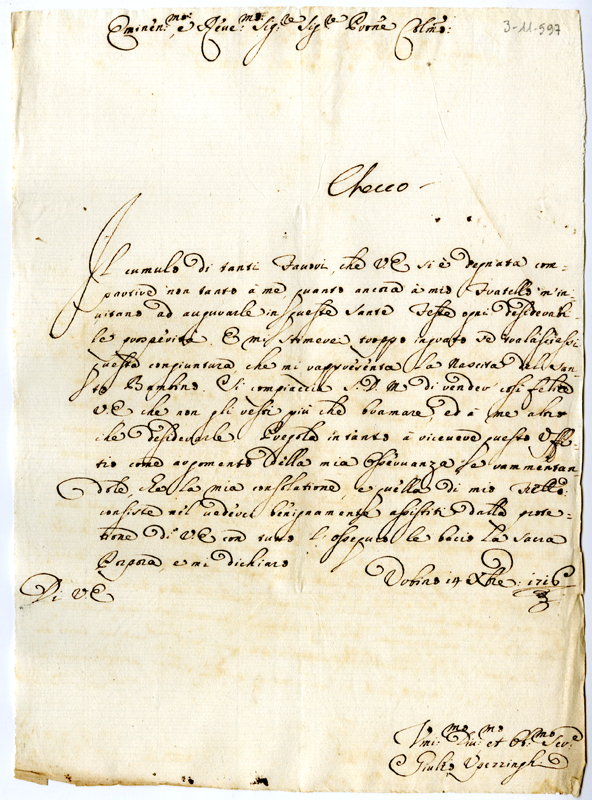 Eminen:mo e Reve:mo Sig:re Sig:re P̃rone Colmo:
3-11-597
Checco
Il cumulo di tanti Favori, che VE si è degnata com-
partire non tanto à me, quanto ancora à mio Fratello m'in-
uitano ad augurarle in queste Sante Feste ogni desiderabi-
le prosperità. E mi stimerei troppo ingrato se tralasciassi
questa congiuntura che mi rappresenta la Nascita del San-
to Bambino. Si compiaccia S. D. M. di render così felice
VE che non gli resti più che bramare, ed à me altro
che desiderarle Pregola intanto à ricevere questo Uffi-
tio come argomento della mia Osservanza, e rammentan
dole, che la mia consolatione, e quella di mio Fratello:
consiste nel vederci benignamente assistiti dalla prote-
tione di VE con tutto l'ossequio le bacio la Sacra
Porpora, e mi dichiaro
14 Xbre: 1716
Di VE
Umi:mo Diu:mo et Ob:mo Ser:e
Giulio